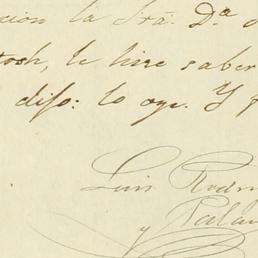 cion la Sra. Da
tosh, le hice saber
dijo: lo oye. Y
Luis Rodri
y Palau